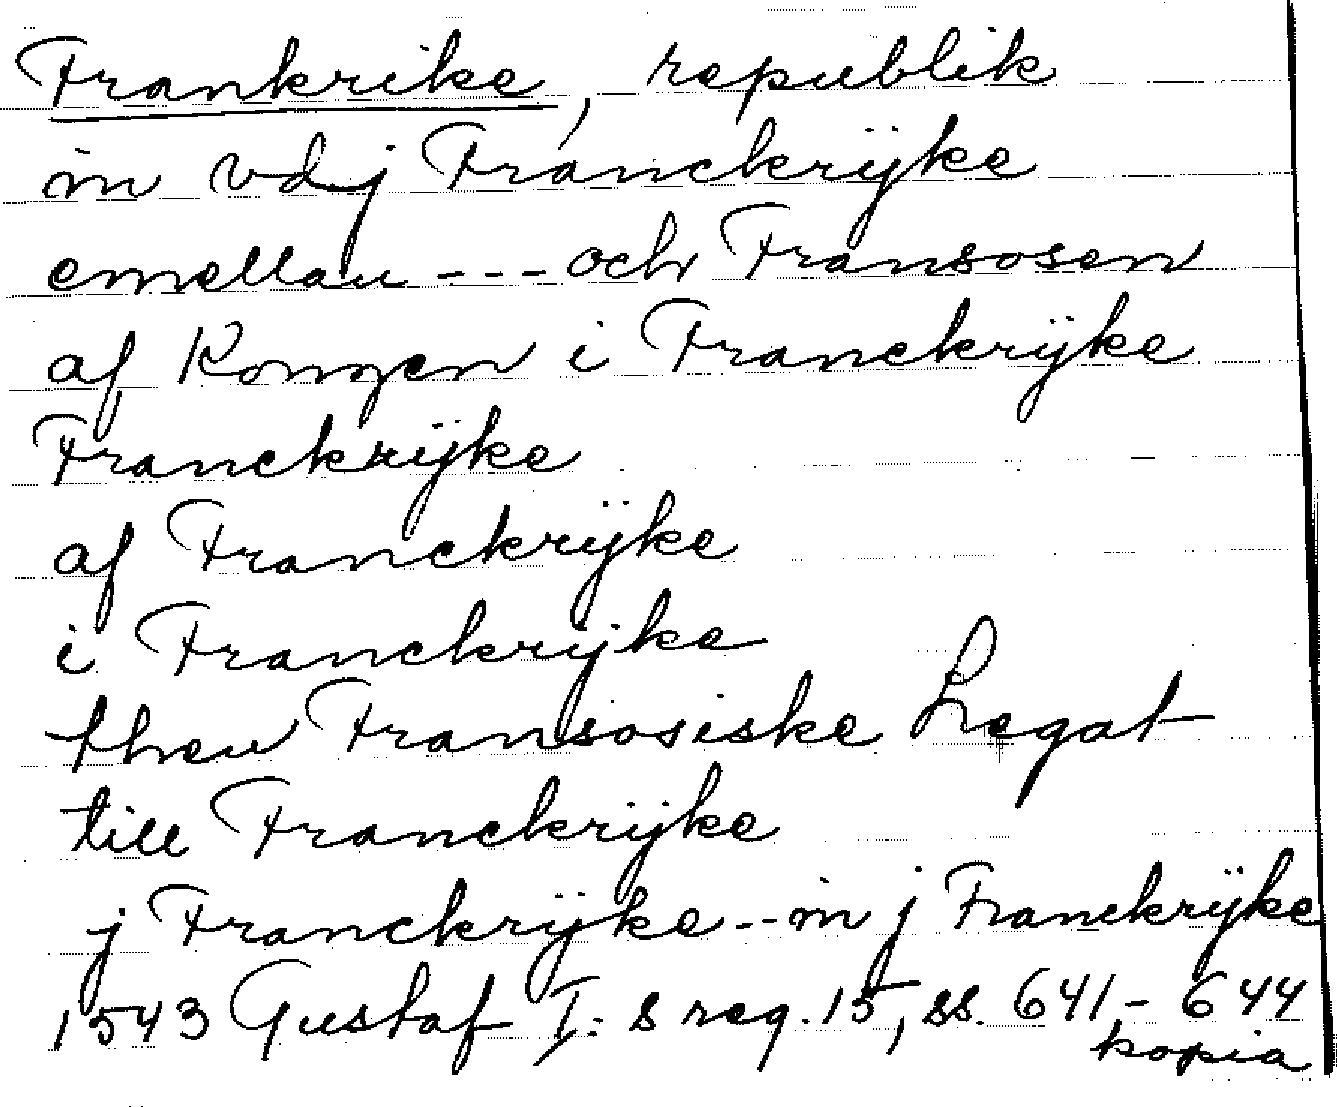 Frankrike, republik
in vdj Franckrÿke
emellan --- och Fransosen
af Kongen i Franckrÿke
Franckrÿke
af Franckrÿke
i Franckrÿke
then Fransosiske Legat
till Franckrÿke
j Franckrÿke -- in j Franckrÿke
1543 Gustaf I:s reg. 15, ss. 641-644
kopia